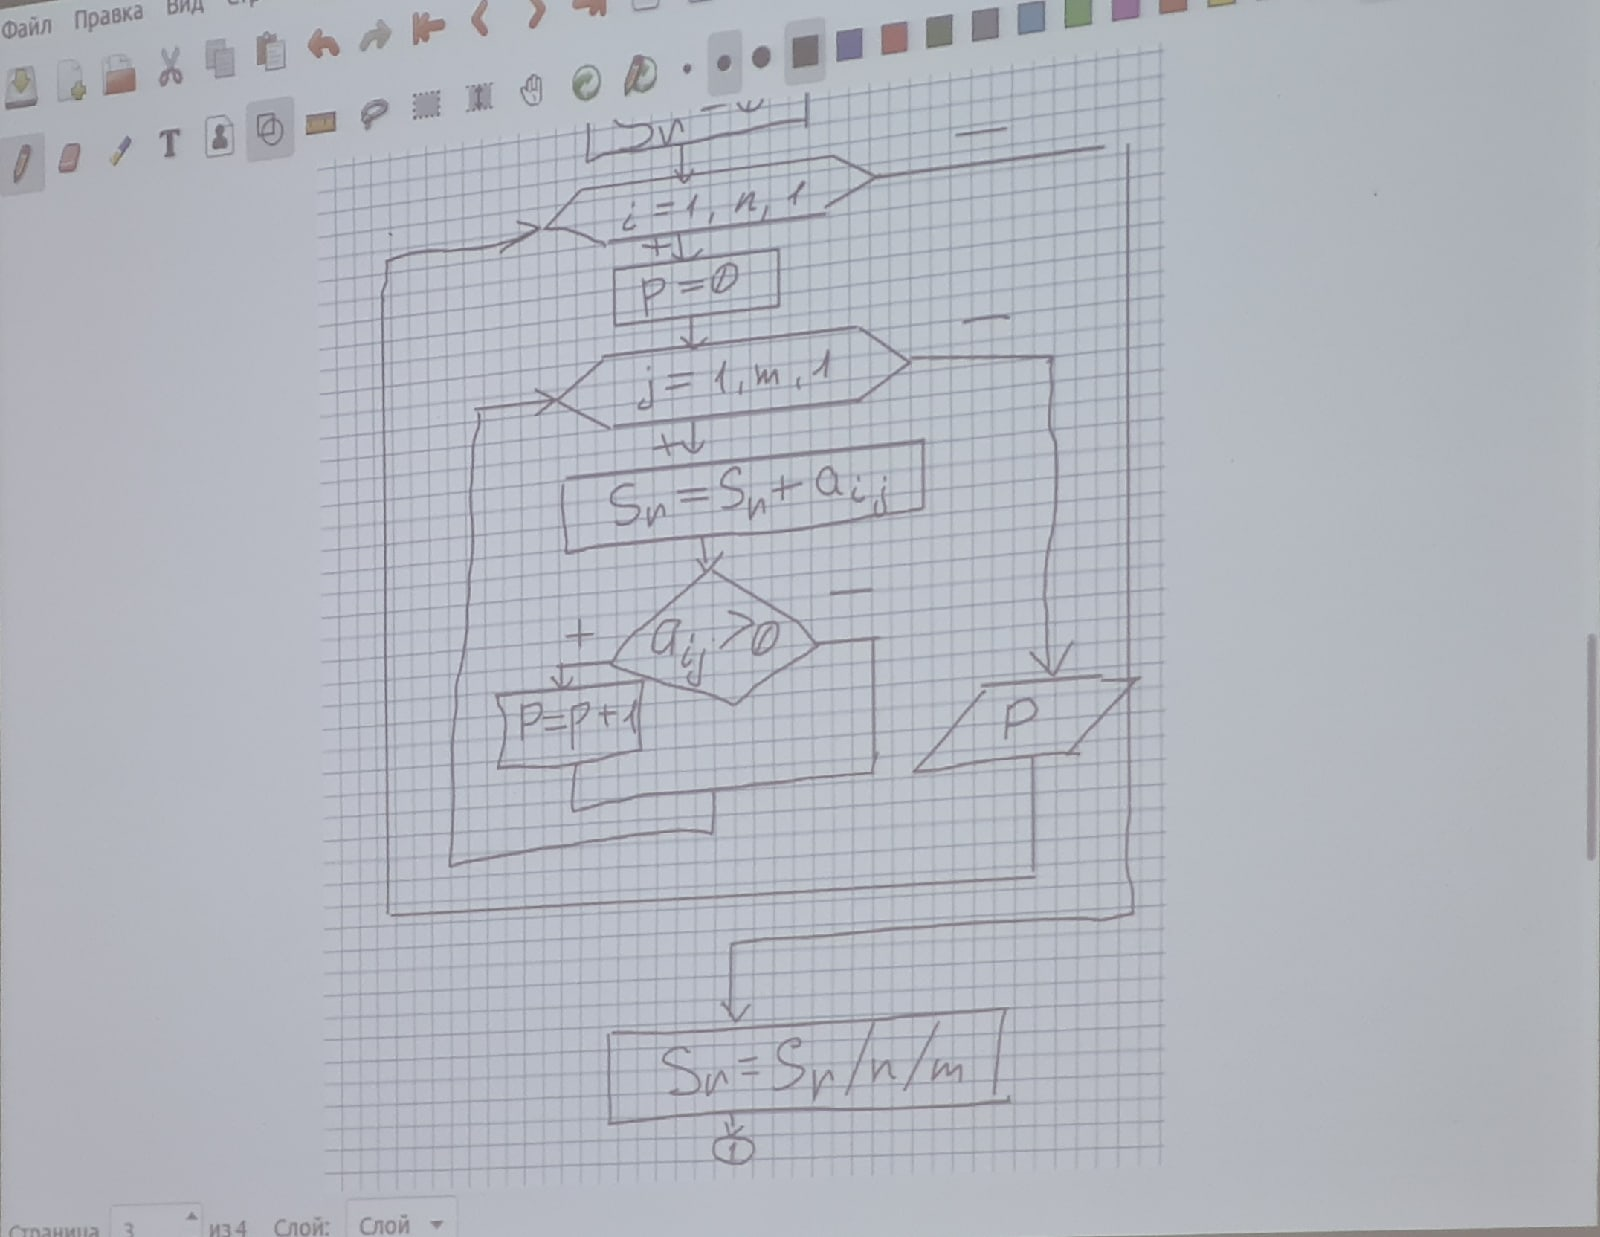 Файл Правка Вид
T
i = 1, n, 1
+
—
p = 0
j = 1, m, 1
—
+
Sr = Sr + aij
aij > 0
+
—
p = p + 1
P
Sr = Sr / n / m
1
Страница 3 из 4 Слой: Слой